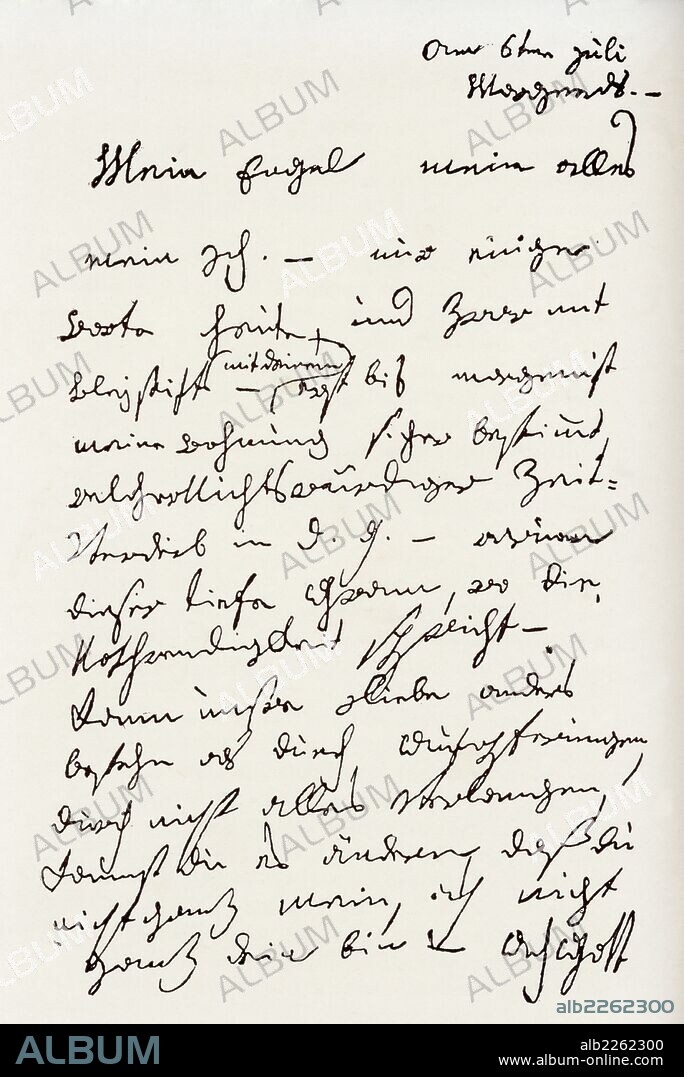 am 6ten juli
Morgends. —
Mein Engel mein alles
mein Ich. — nur einige
worte heute, und zwar mit
mit deinem
bleÿstift — erst bis morgen ist
meine wohnung sicher bestimt,
welcher Nichtswürdiger Zeit-
Verderb in d. g. — warum
dieser tiefe Gram, wo die
Nothwendigkeit spricht —
Kann unsre Liebe anders
bestehn als durch Aufopferungen,
durch nicht alles verlangen,
kannst du es ändern, daß du
nicht ganz mein, ich nicht
ganz dein bin — Ach Gott
ALBUM
alb2262300
ALBUM
alb2262300
www.album-online.com